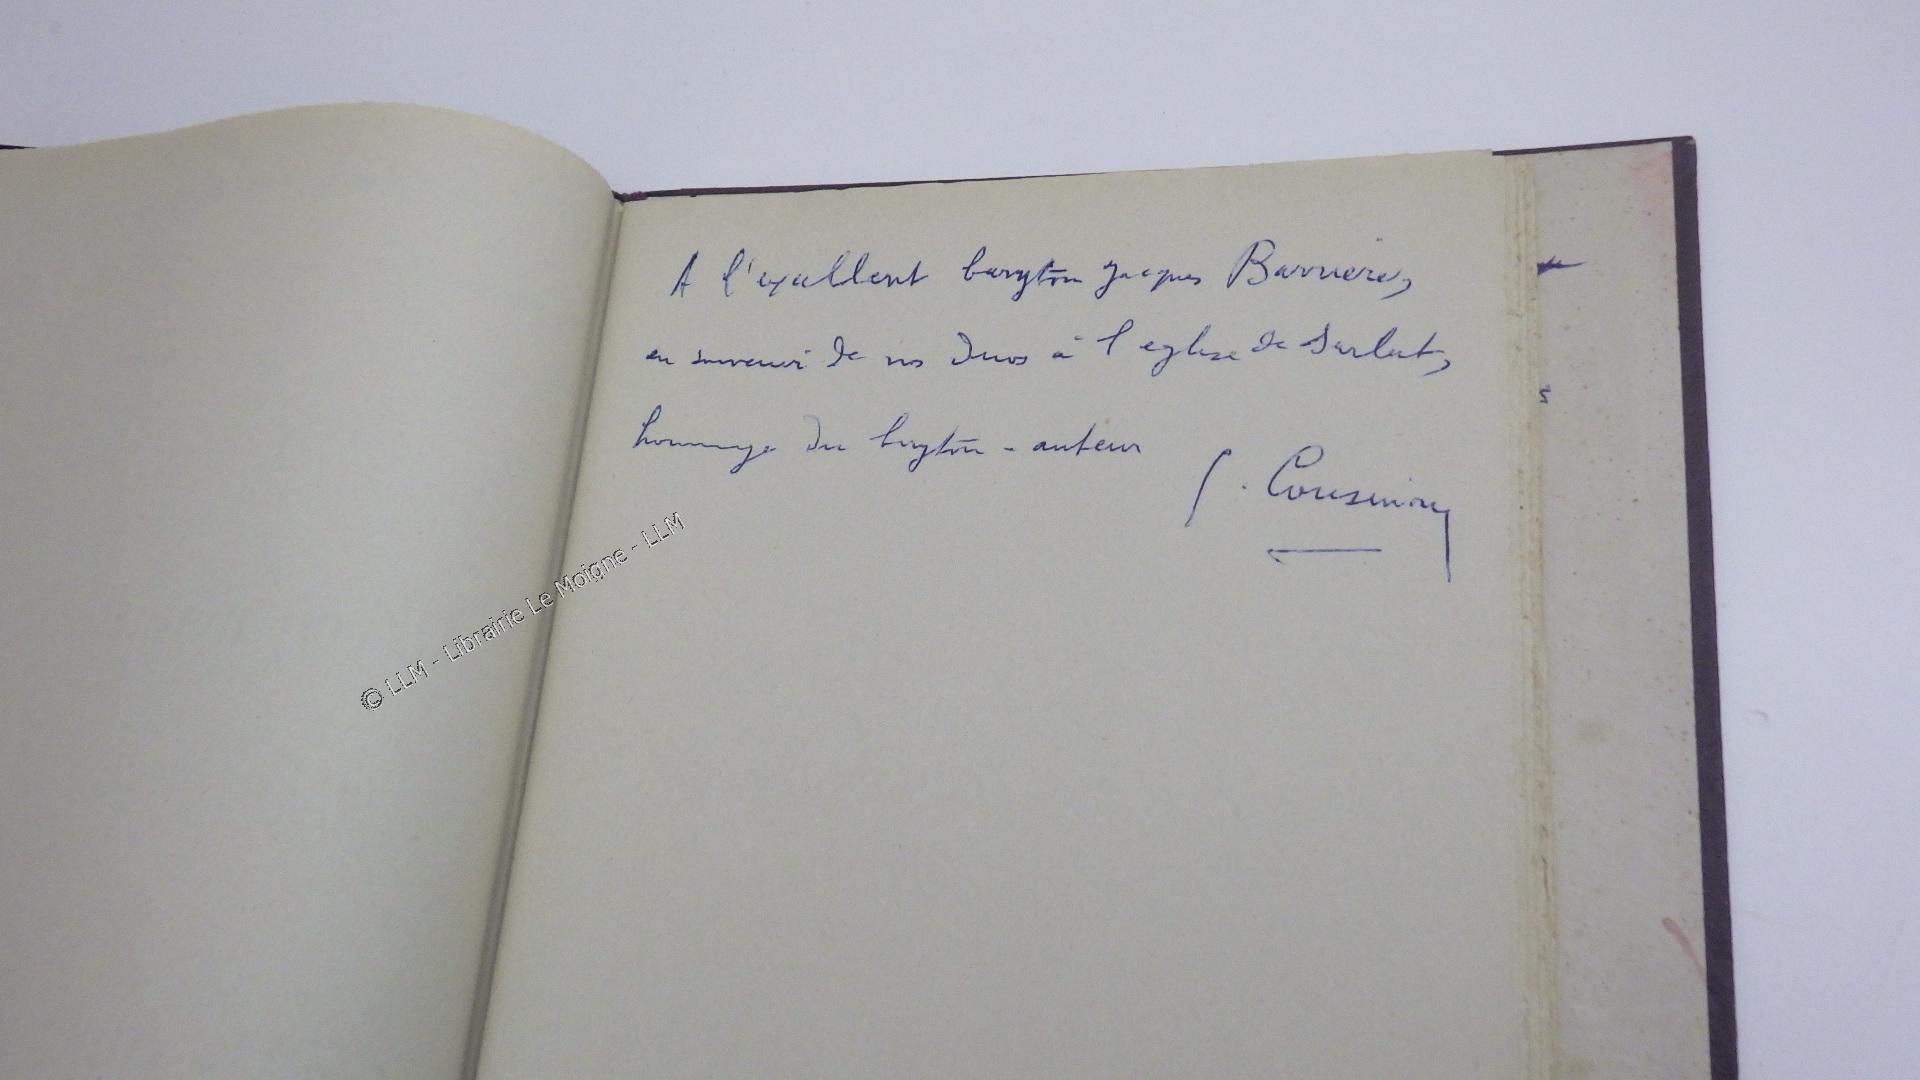 A l'excellent baryton Jacques Barrière,
en souvenir de nos duos à l'eglise de Sarlat,
hommage du baryton-auteur
. Cousinou
© LLM - Librairie Le Moigne - LLM